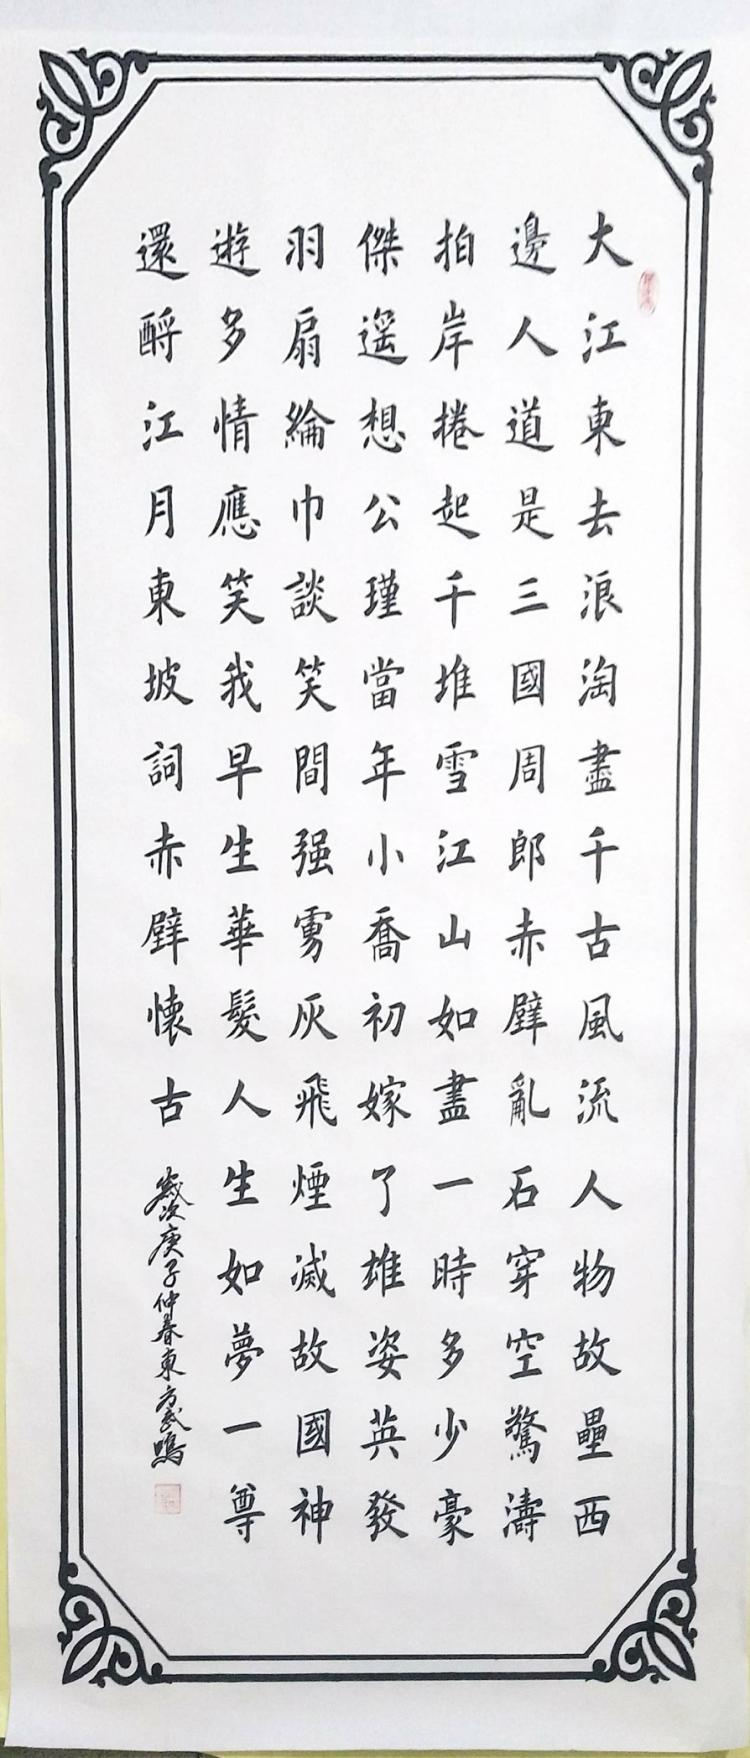 大江東去浪淘盡千古風流人物故壘西
邊人道是三國周郎赤壁亂石穿空驚濤
拍岸捲起千堆雪江山如畫一時多少豪
傑遥想公瑾當年小喬初嫁了雄姿英發
羽扇綸巾談笑間强虜灰飛煙滅故國神
遊多情應笑我早生華髮人生如夢一尊
還酹江月東坡詞赤壁懷古
歲次庚子仲春東方武鳴